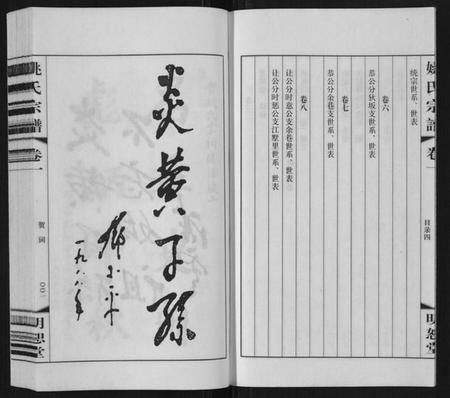 姚氏宗谱
卷一
目录四
明恕堂
统宗世系、世表
卷六
恭公分狄坂支世系、世表
卷七
恭公分余巷支世系、世表
卷八
让公分时意公支余巷世系、世表
让公分时恕公支江墅里世系、世表
炎黄子孙
邓小平
一九八八年
姚氏宗谱
卷一
贺词
〇〇一
明恕堂